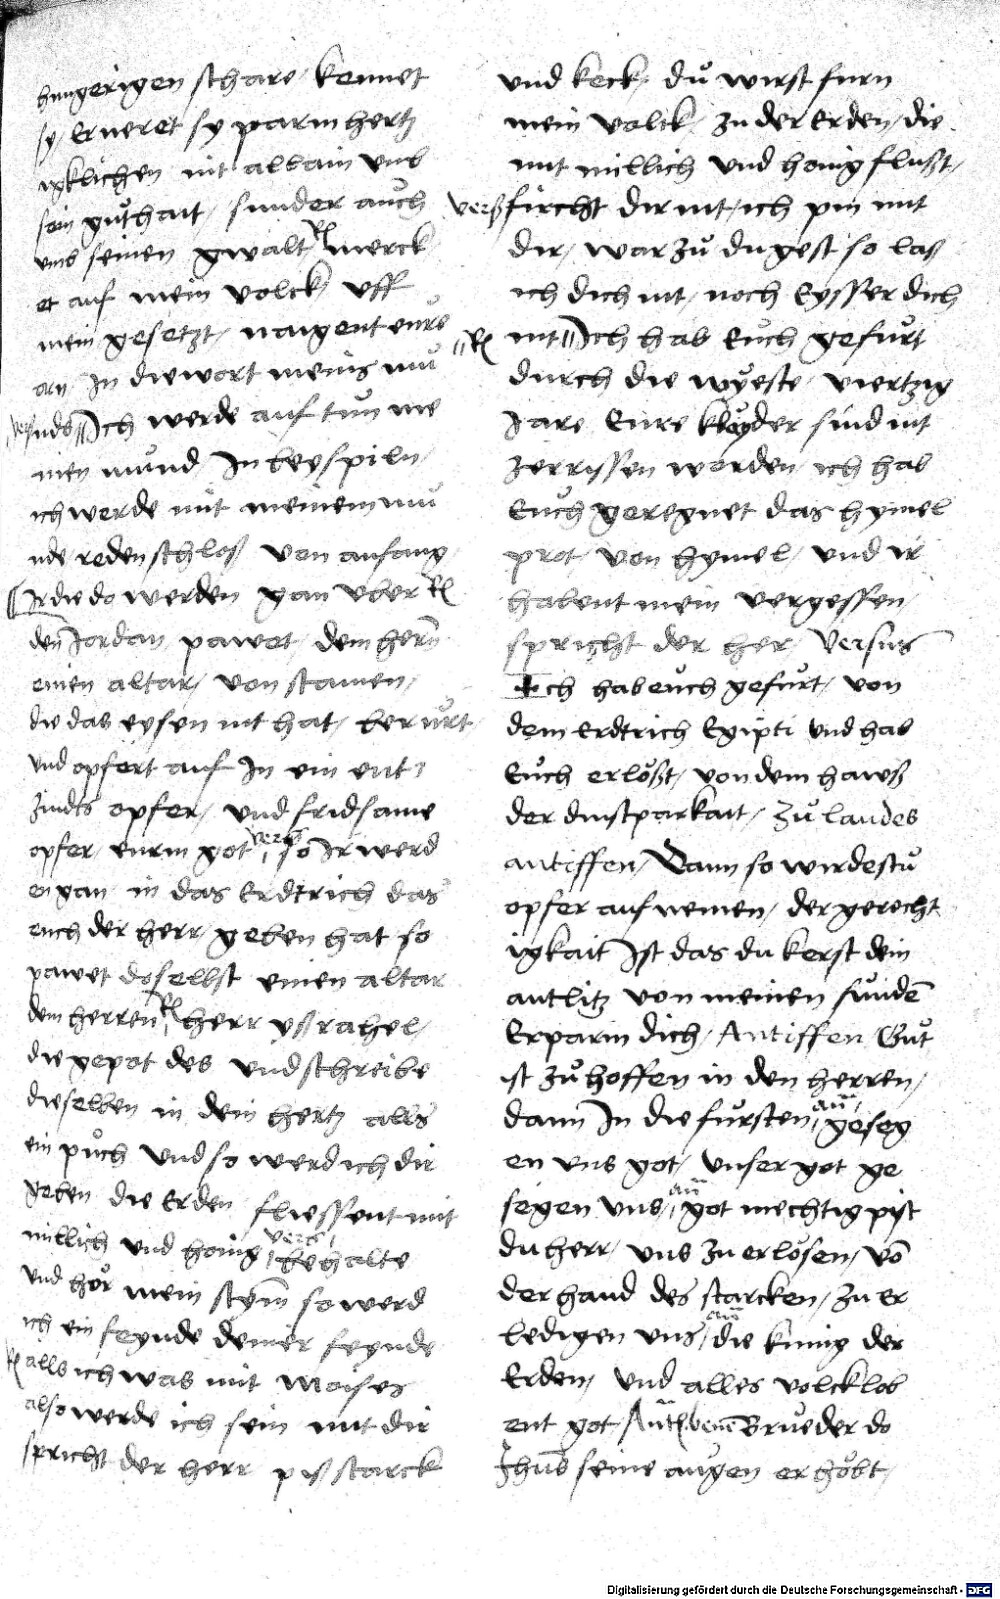 hungerigen schare kennet
sy Erneret sy parmhertz
igklichen nit allain uns
sein gůthait, sunder auch
uns seinen gwalt R merck
et auf mein volck uff
mein gesetzt, naigent eure
orn In die wort meins mu
nds Ich werde auf tun me
nen mund In beyspiln
ich werde mit meinem mu
nde reden schloß von anfang
Ir die do werden gan uber R
den Jordan pawet, dem hern
einen altar, von stainen,
die das eysen nit hat, berurt
und opfert auf In ein ent
zindts opfer, und fridsame
opfer, eurm got vers so Ir werd
en gan in das Erdtrich das
euch der herr geben hat so
pawet doselbst einen altar
dem herren R herr ysrahel,
die gepot des und schreibe
dieselben in dein hertz alls
ein půch und so werd ich dir
geben die Erden fliessent mit
millich und honig vers behalte
und hör mein stym so werd
ich ein feynde deiner feynde
R alls ich was mit Moises
also werde ich sein mit dir
spricht der herr piß starck
und keck, du wirst furn
mein volck, zu der Erden, die
mit millich und honig flußt,
verß furcht dir nit, ich pin mit
dir, warzů du gest so laß
ich dich nit, noch Eysser dich
R nit Ich hab Euch gefurt
durch die wyeste, viertzig
Jare Eure klayder sind nit
zerryssen worden, ich hab
Euch geregnet das hymel
prot, von hymel, und ir
habent mein vergessen,
spricht der her, Versus
Ich hab euch gefurt, von
dem Erdtrich Egipti und hab
Euch erlößt, von dem hawß
der dinstparkait, Zů laudes
antiffen, Dann so wirdestu
opfer aufnemen, der gerecht
igkait Ist das du kerst dein
antlitz von meinen sunden
Erparm dich, Antiffen Gůt
ist zů hoffen in den herren,
dann In die fursten, an geseg
en uns got, unser got ge
segen uns, an got mechtig pist
du herr, uns zu erlösen, vō
der hand des starcken, zu er
ledigen uns, an die kunig der
Erden, und alles volck lob
ent got Brueder do
Jhus seine augen erhöbt,
Digitalisierung gefördert durch die Deutsche Forschungsgemeinschaft - DFG